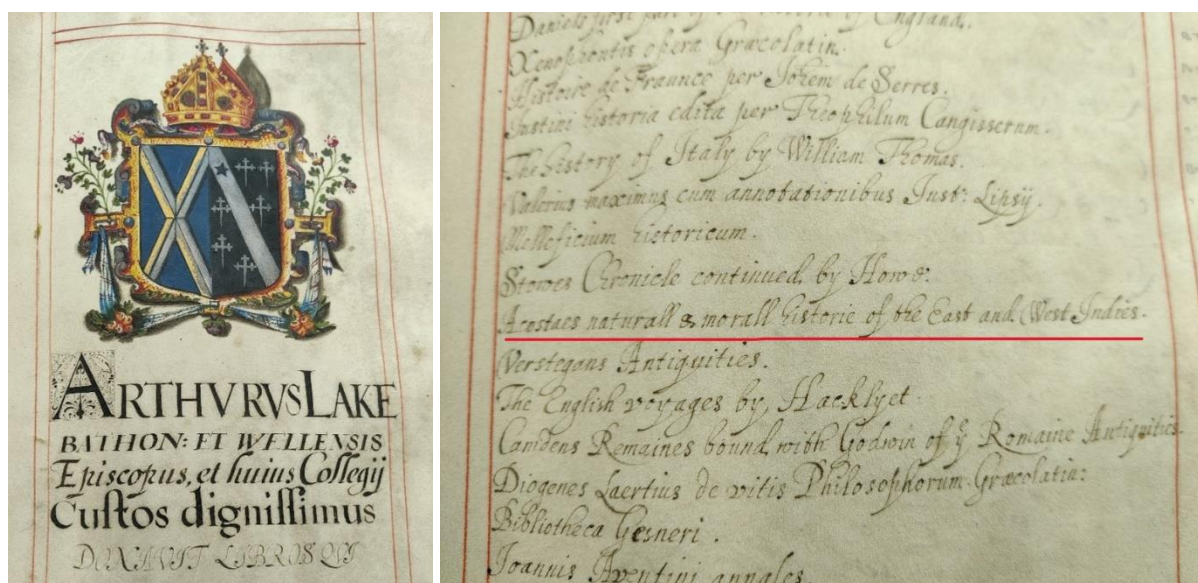 ARTHVRVS LAKE
BATHON: ET WELLENSIS
Episcopus, et huius Collegij
Custos dignissimus
DONAVIT LIBROS QVI
Daniels first part of England.
Xenophontis opera Græcolatin.
Histoire de Fraunce per Johem de Serres.
Justini historia edita per Theophilum Cangisserum.
The history of Italy by William Thomas.
Valerius maximus cum annotationibus Just: Lipsij.
Mellificium historicum.
Stowes Chronicle continued by Howe.
Acostaes naturall & morall historie of the East and West Indies.
Verstegans Antiquities.
The English voyages by Hacklyet.
Camdens Remaines bound with Godwin of ye Romaine Antiquities.
Diogenes Laertius de vitis Philosophorum Græcolatin:
Bibliotheca Gesneri.
Joannis Aventini annales